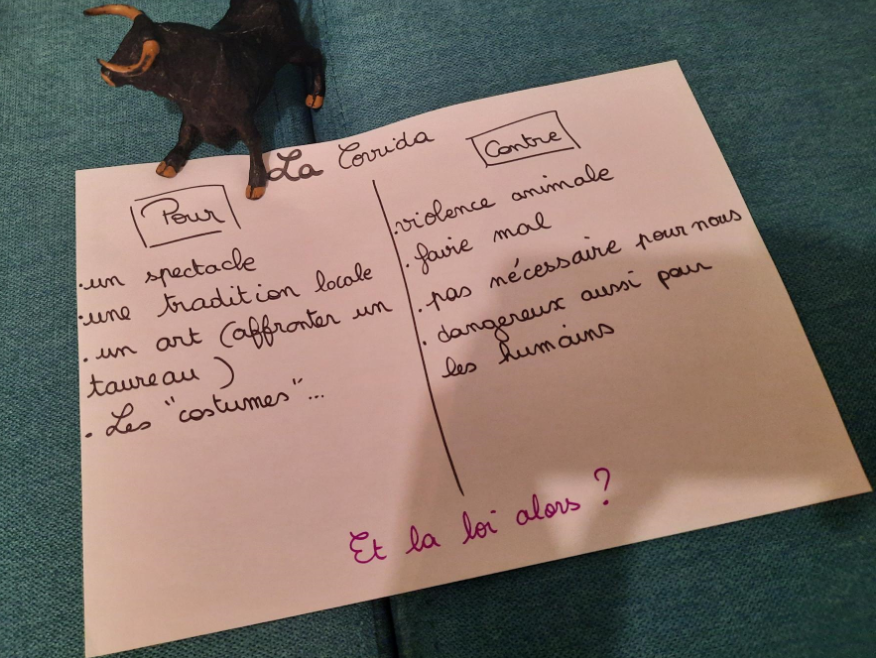 La Corrida
Pour
. un spectacle
. une tradition locale
. un art (affronter un
taureau)
. Les "costumes"...
Contre
. violence animale
. faire mal
. pas nécessaire pour nous
. dangereux aussi pour
les humains
Et la loi alors ?